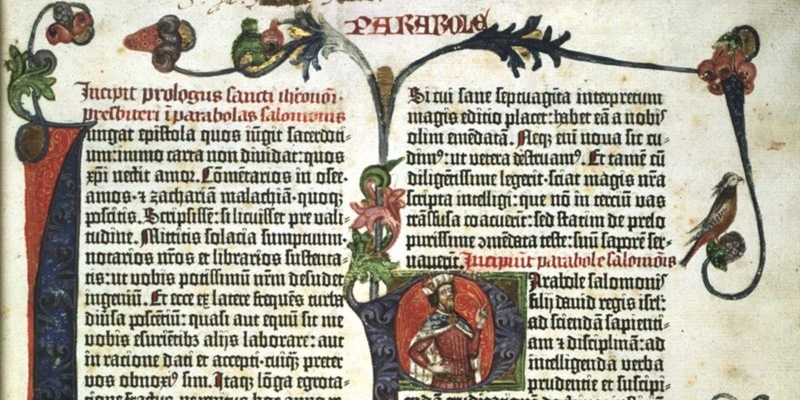 PARABOLE
Incipit prologus sancti iheronimi
presbiteri ī parabolas salomonis
Iungat epistola quos iūgit sacerdoti-
um: immo carta non dividat: quos
xp̄i nectit amor. Cōmētarios in osee.
amos. ⁊ zachariā malachiā· quoqȝ
poscitis. Scripsissē: si licuisset pre vali-
tudine. Mittitis solacia sumptuum.
notarios nr̄os et librarios sustenta-
tis: ut vobis potissimū nr̄m desudet
ingeniū. Et ecce ex latere freq̄uēs turba
diūsa poscētiū: quasi aut equū sit me
vobis esurietibȝ alijs laborare: aut
in racione dati et accepti· cuiq̄ȝ preter
vos obnoxiꝰ sim. Itaqȝ lōga egrota-
Si cui sane septuagīta interpretum
magis editio placet: habet eā a nobiſ
olim emēdatā. Neqȝ em̄ nova sic cu-
dimꝰ: ut vetera destruamꝰ. Et tamē cū
diligētissime legerit· sciat magis nr̄a
scripta intelligi: que nō in terciū vas
trāsfusa coacuerīt: sed statim de prelo
purissime ↄmēdata teste: suū saporē ser-
vaverīt. Incipiunt parabole salomōis
Parabole salomonis
filij david regis isrl̄:
ad sciendā sapienti-
am ⁊ disciplinā: ad
intelligenda verba
prudentie et suscipi-